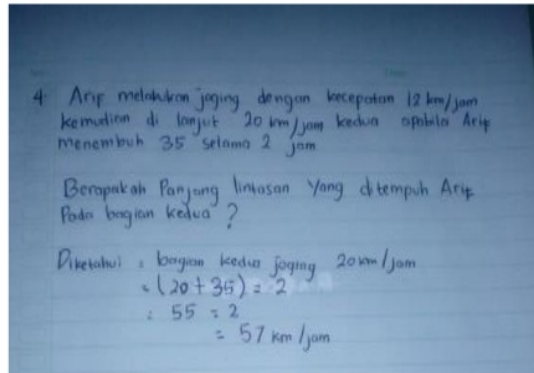 4. Arip melakukan joging dengan kecepatan 12 km/jam
kemudian di lanjut 20 km/jam kedua apabila Arif
menembuh 35 selama 2 jam
Berapakah Panjang lintasan Yang ditempuh Arif
Pada bagian kedua ?
Diketahui : bagian kedua joging 20 km/jam
= (20 + 35) = 2
= 55 = 2
= 57 km/jam